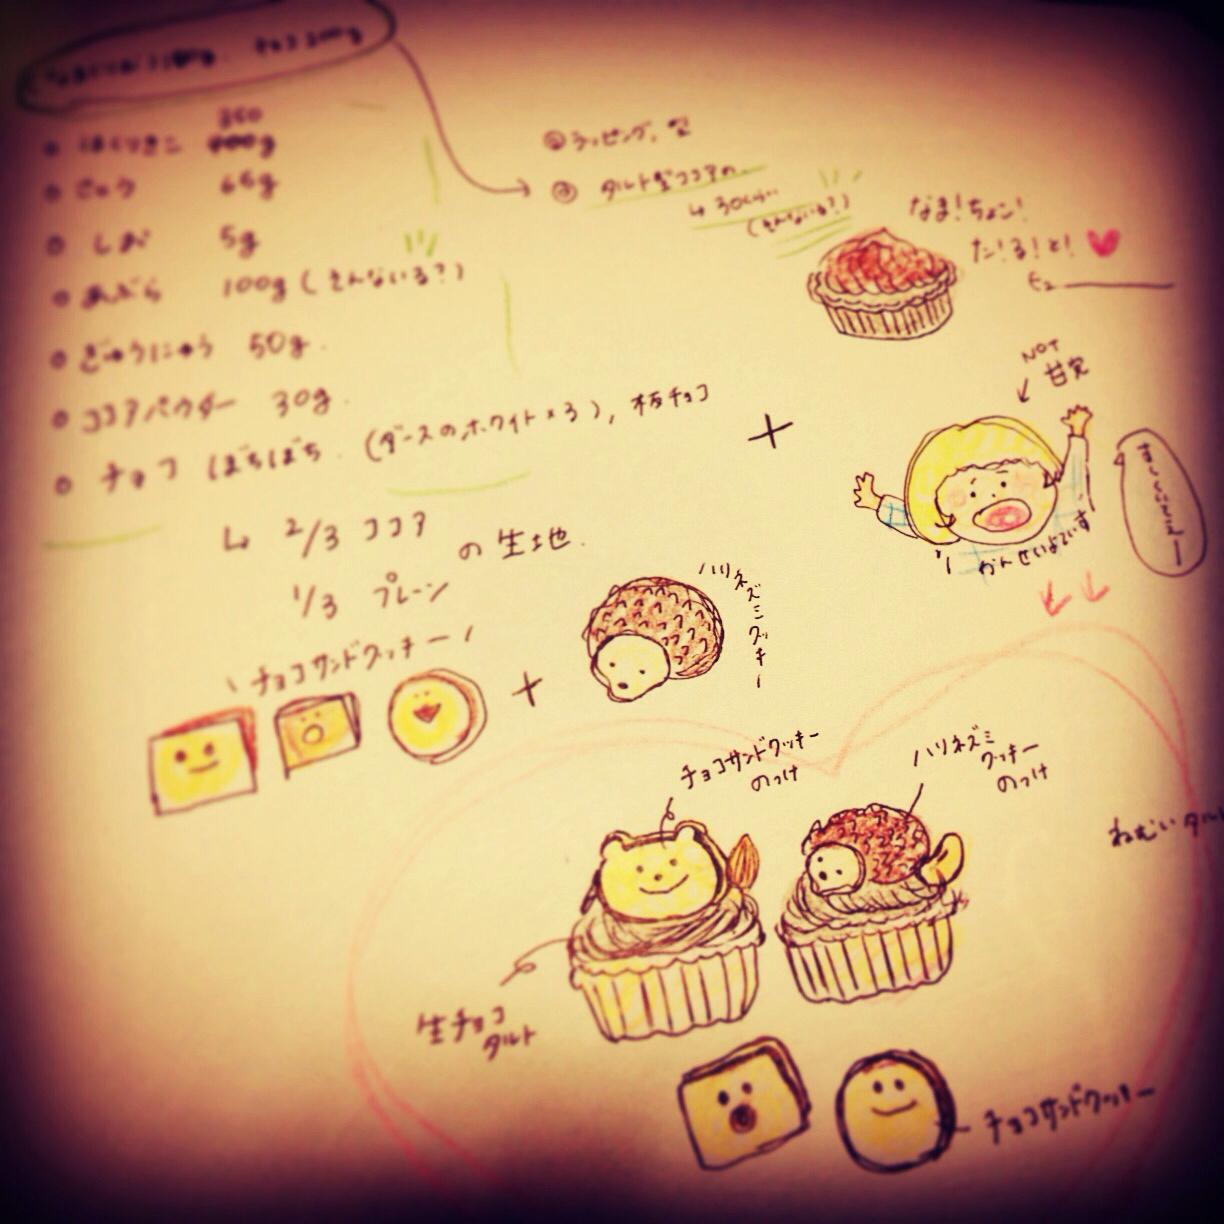 チョコ200g
350
はくりきこ
さとう 65g
しお 5g
あぶら 100g (そんないる?)
ぎゅうにゅう 50g.
ココアパウダー 30g.
チョコ ぼちぼち. (ダースのホワイト×3), 板チョコ
↳ 2/3 ココア
の生地.
1/3 プレーン
チョコサンドクッキー
ラッピング,
タルト型ココアの
↳ 30くらい
(そんないる?)
なま!チョコ!
た!る!と!
+
NOT
甘栗
かんせいよていず
ハリネズミクッキー
+
チョコサンドクッキー
のっけ
ハリネズミ
クッキー
のっけ
ねむいタルト
生チョコ
タルト
チョコサンドクッキー